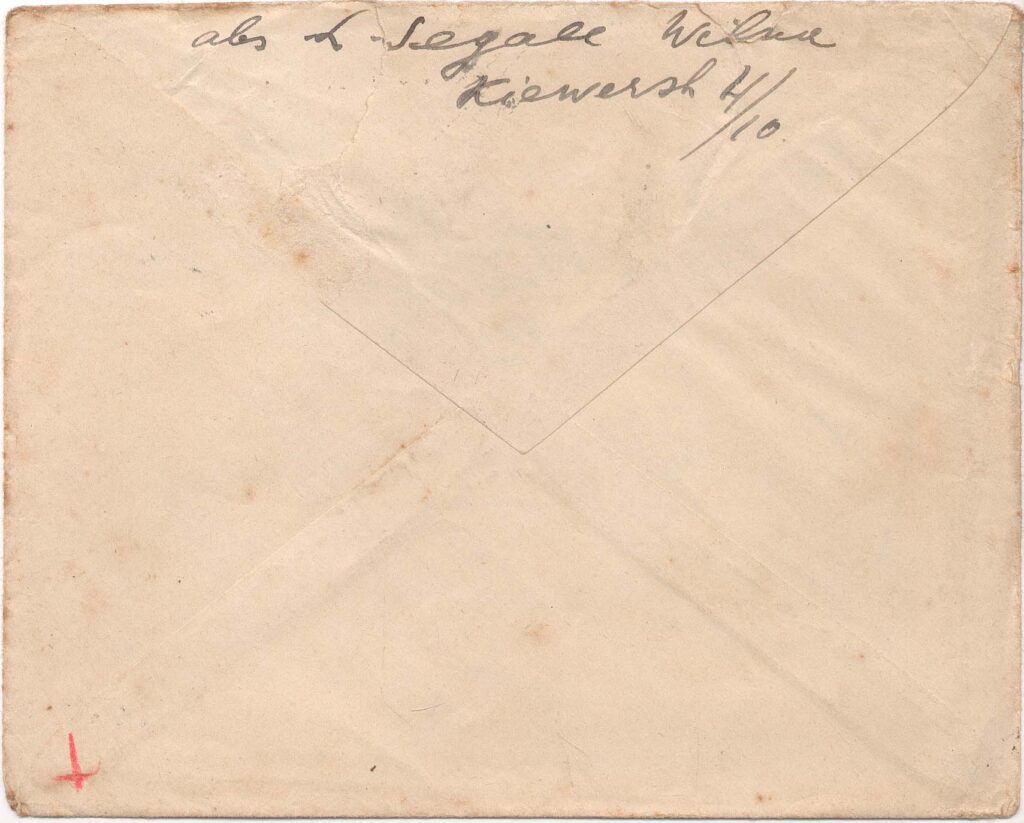 abs L. Segall Wilna
Kiewersk 4/10.